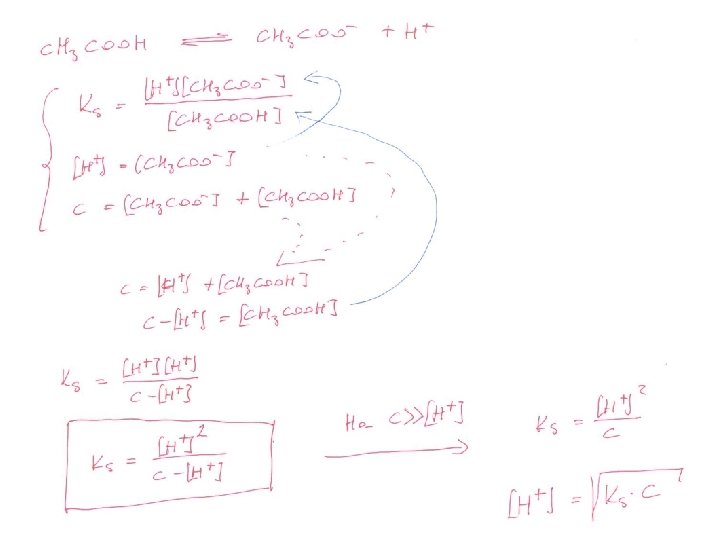 CH₃COOH ⇌ CH₃COO⁻ + H⁺
Ks = [H⁺][CH₃COO⁻] / [CH₃COOH]
[H⁺] = [CH₃COO⁻]
c = [CH₃COO⁻] + [CH₃COOH]
c = [H⁺] + [CH₃COOH]
c - [H⁺] = [CH₃COOH]
Ks = [H⁺][H⁺] / c - [H⁺]
Ks = [H⁺]² / c - [H⁺]
Ha c >> [H⁺]
Ks = [H⁺]² / c
[H⁺] = √Ks · c